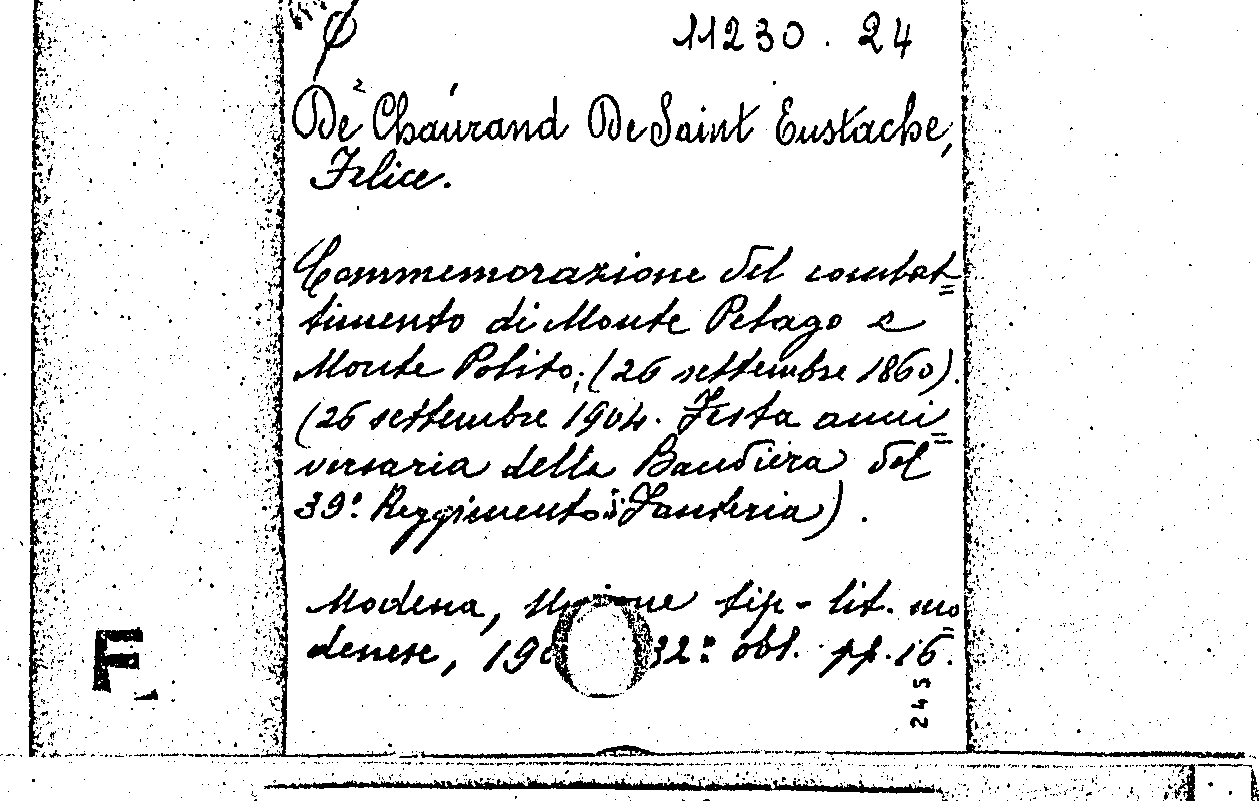 11230. 24
De Chaurand De Saint Eustache,
Felice.
Commemorazione del combat=
timento di Monte Pelago e
Monte Polito; (26 settembre 1860).
(26 settembre 1904. Festa anni=
versaria della Bandiera del
39º Reggimento Fanteria).
Modena, tip-lit. mo=
denese, 32º obl. pp. 16.
245
F